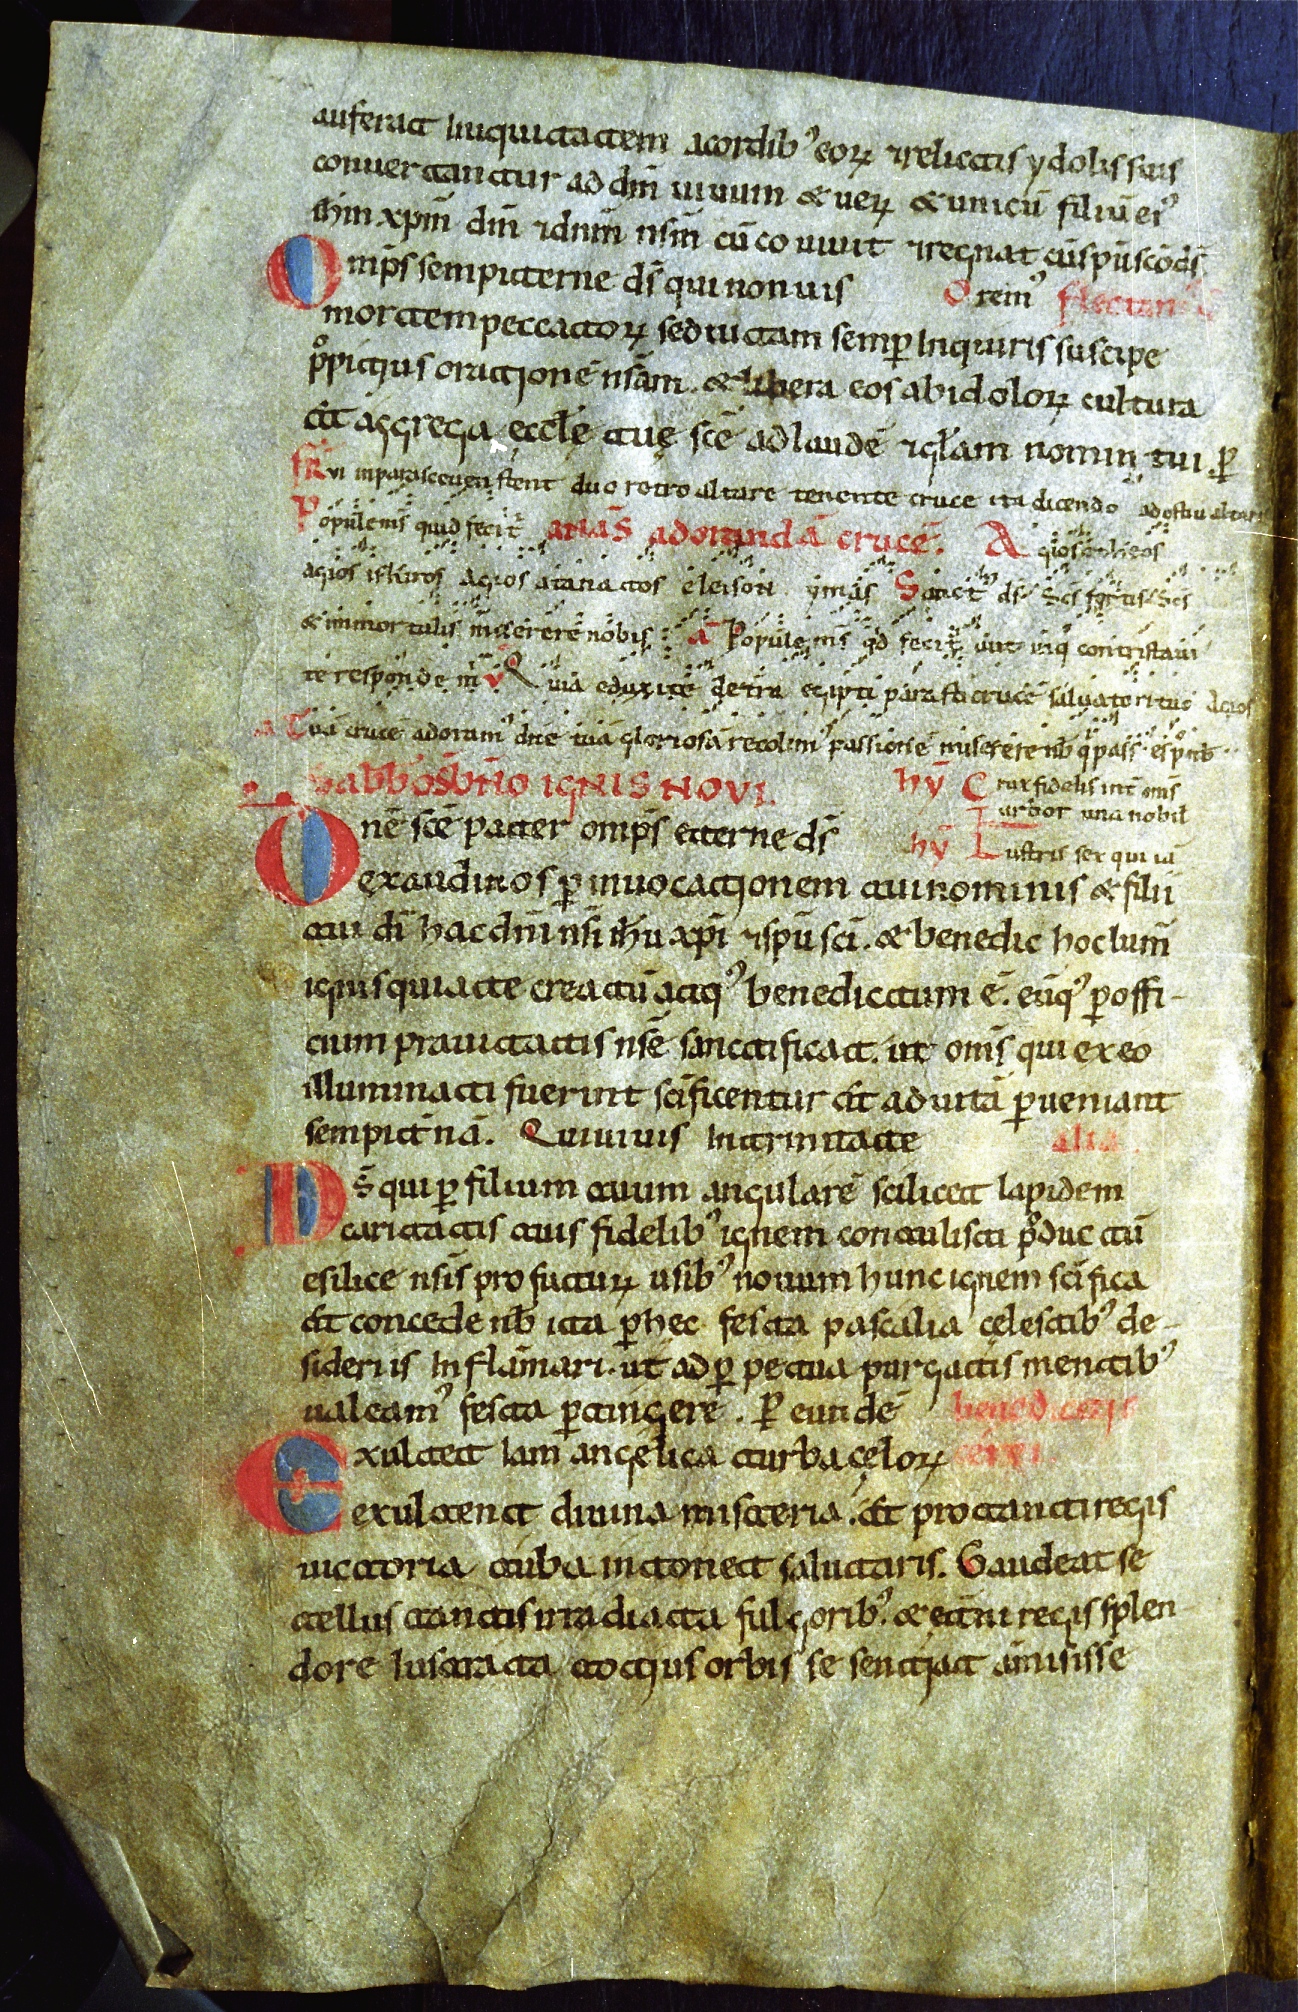 auferat iniquitatem a cordib' eoꝝ ⁊ relictis ydolis suis
convertantur ad dm̄ vivum & veꝝ & unicū filiū ei'
ihm xpm̄ dm̄ ⁊ dnm̄ nsm̄ cū co vivit ⁊ regnat cū spu sco ds̄
Omps̄ sempiterne ds̄ qui non vis Orem' flectam'
mortem peccatoꝝ sed vitam semꝑ inquiris suscipe
ꝓpitius orationē nsām. & libera eos ab idoloꝝ cultura
et aggrega ęcclę tuę scē ad laudē ⁊ glam nomin tui. ꝑ
fr̄ vi in parasceven stent duo retro altare tenente cruce ita dicendo
Popule ms̄ quid feci t̄ anās̄ adorandā crucē. Agios o theos
agios iskiros Agios atanatos eleison ymās Sanct' ds̄ Scs̄ fortis Scs̄
& inmortalis miserere nobis: a Popule ms̄ qd feci t̄ aut in q̄ contristavi
te responde m̄ v̄ Quia eduxi te de tra egipti parasti crucē salvatori tuo Agios
a Tuā crucē adoram' dnē tuā gloriosā recolim' passionē miserere nb̄ q̄ pass' es ꝓ nb̄
Sabbō s̄ bn̄o ignis novi. hȳ Crux fidelis int̄ om̄s
arbor una nobil
Onē scē pater omps̄ eterne ds̄ hȳ Lustris sex qui iā
exaudi nos ꝑ invocationem tui nominis & filii
tui di hac dnī nsī ihū xpī ⁊ spū scī. & benedic hoc lum̄
ignis qui a te creatū atq' benedictum ē. eūq' ꝑ offi-
cium pravitatis nsē sanctificat. ut om̄s qui ex eo
illuminati fuerint scīficentur et ad vitā ꝑveniant
sempit̄nā. Qui vivis in trinitate alia.
Ds̄ qui ꝑ filium tuum angularē scilicet lapidem
caritatis tuis fidelib' ignem contulisti ꝓductū
e silice nsīs profuturꝝ usib' novum hunc ignem scīfica
et concede nb̄ ita ꝑ hec festa pascalia cęlestib' de-
sideriis inflāmari. ut ad ꝑpetua purgatis mentib'
valeam' festa ꝑtingere. ꝑ eundē
Exultet iam angelica turba cęloꝝ cerei.
exultent divina misteria. Et pro tanti regis
victoria tuba intonet salutaris. Gaudeat se
tellus tantis irradiata fulgorib'. & et̄ni regis splen
dore lustrata totius orbis se sentiat āmisisse